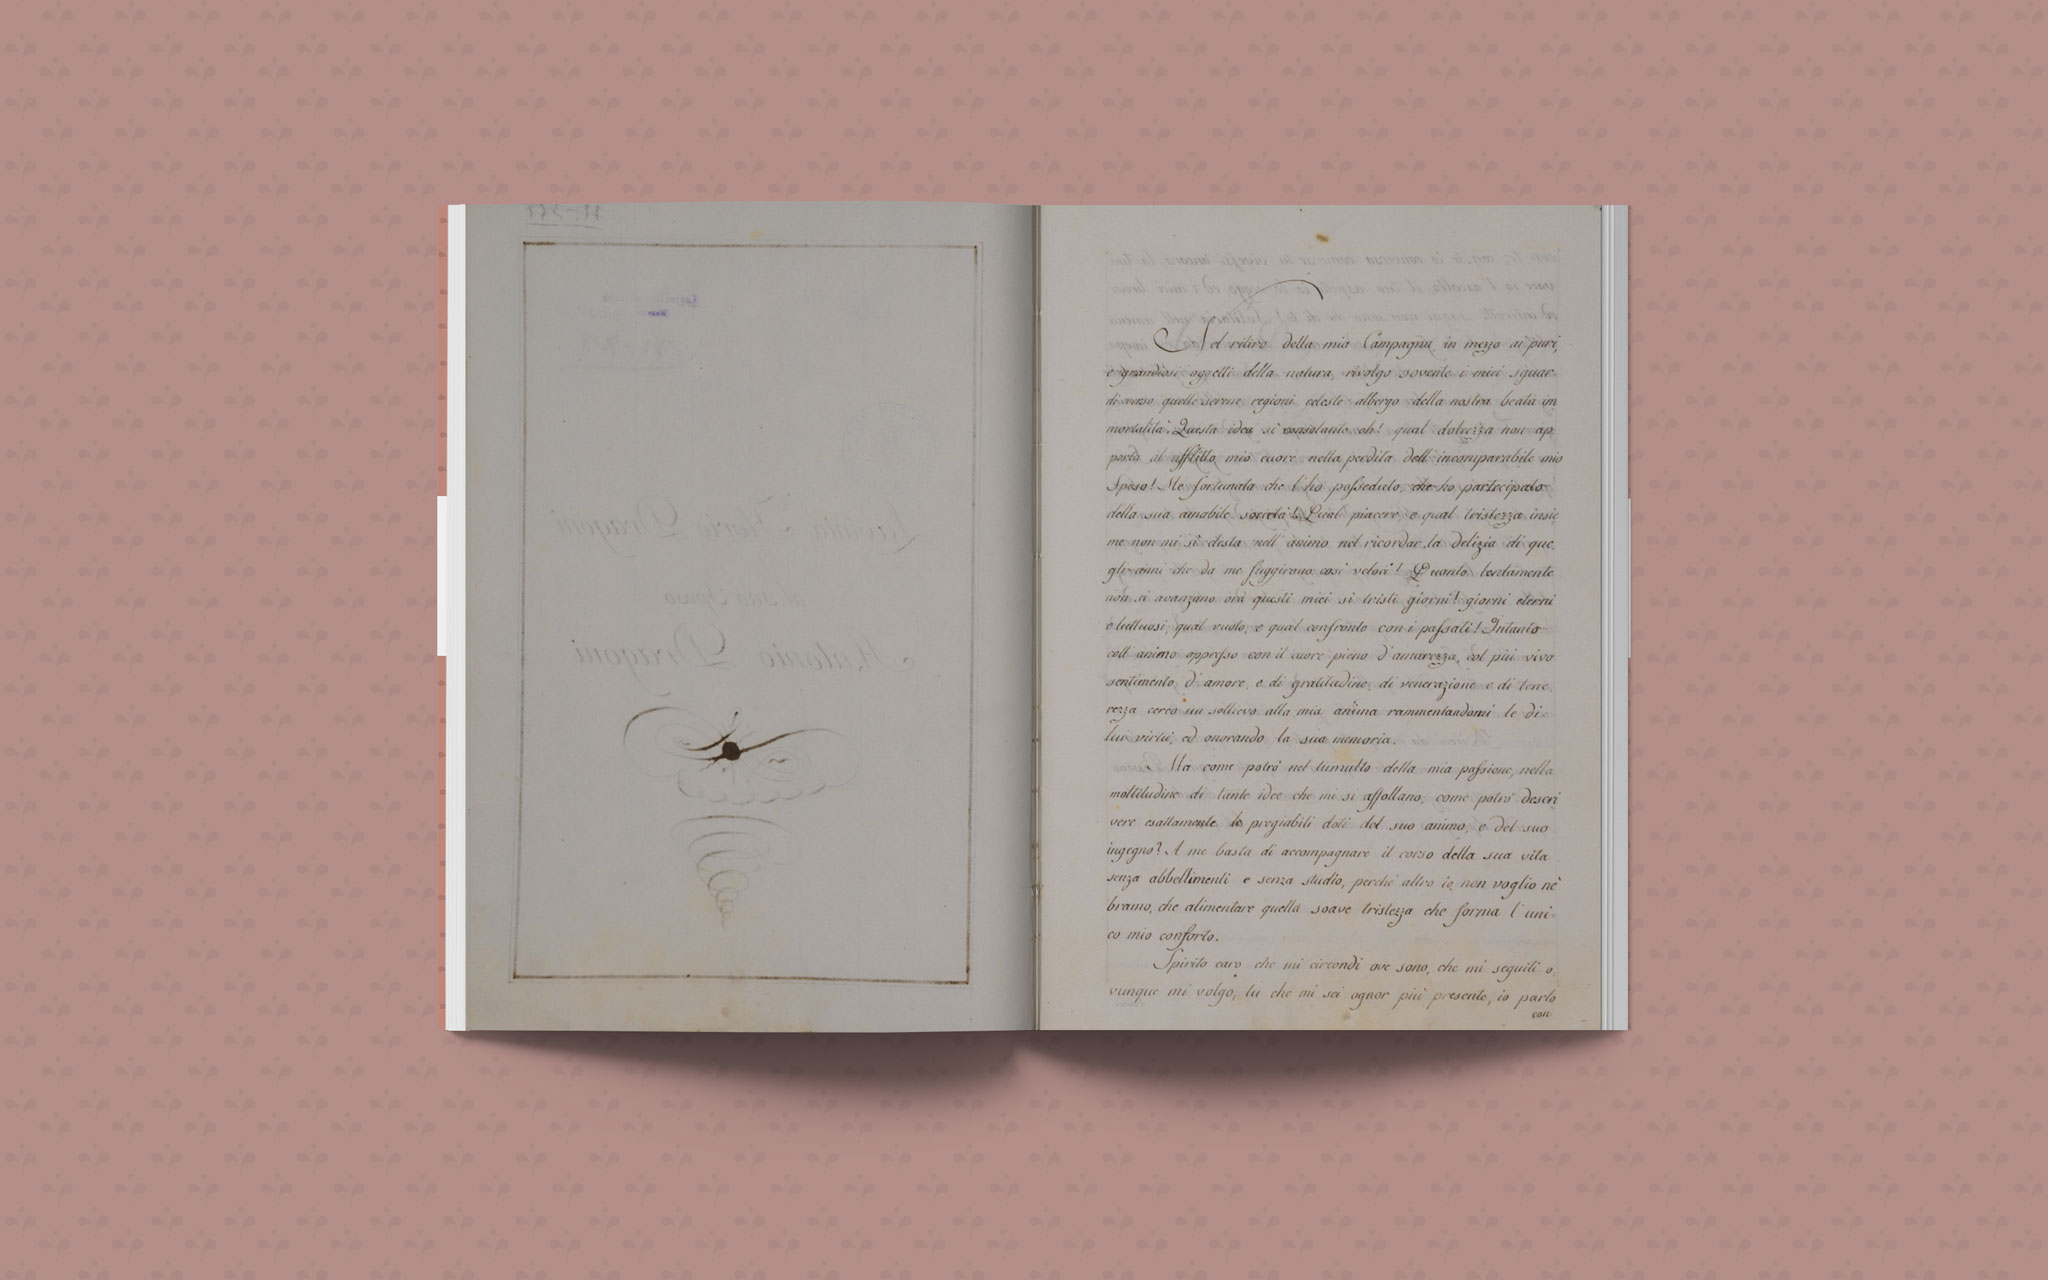 Nel ritiro della mia Campagna in mezzo ai puri,
e grandiosi oggetti della natura, rivolgo sovente i miei sguar
di verso quelle serene regioni celeste albergo della nostra beata im
mortalità. Questa idea sì consolante oh! qual dolcezza non ap
porta al afflitto mio cuore nella perdita dell'incomparabile mio
Sposo! Me fortunata che l'ho posseduto, che ho partecipato
della sua amabile società! Qual piacere, e qual tristezza insie
me non mi si desta nell'animo nel ricordar la delizia di que
gli anni che da me fuggirono così veloci! Quanto lentamente
non si avanzano ora questi miei sì tristi giorni! giorni eterni
e luttuosi, qual vuoto, e qual confronto con i passati! Intanto
coll'animo oppresso con il cuore pieno d'amarezza, col più vivo
sentimento d'amore, e di gratitudine, di venerazione e di tene
rezza cerco un sollievo alla mia anima rammentandomi le di
lui virtù, ed onorando la sua memoria.
Ma come potrò nel tumulto della mia passione, nella
moltitudine di tante idee che mi si affollano, come potrò descri
vere esattamente le pregiabili doti del suo animo, e del suo
ingegno? A me basta di accompagnare il corso della sua vita
senza abbellimenti e senza studio, perchè altro io non voglio nè
bramo, che alimentare quella soave tristezza che forma l'uni-
co mio conforto.
Spirito caro che mi circondi ove sono, che mi seguiti o
vunque mi volgo, tu che mi sei ognor più presente, io parlo
con